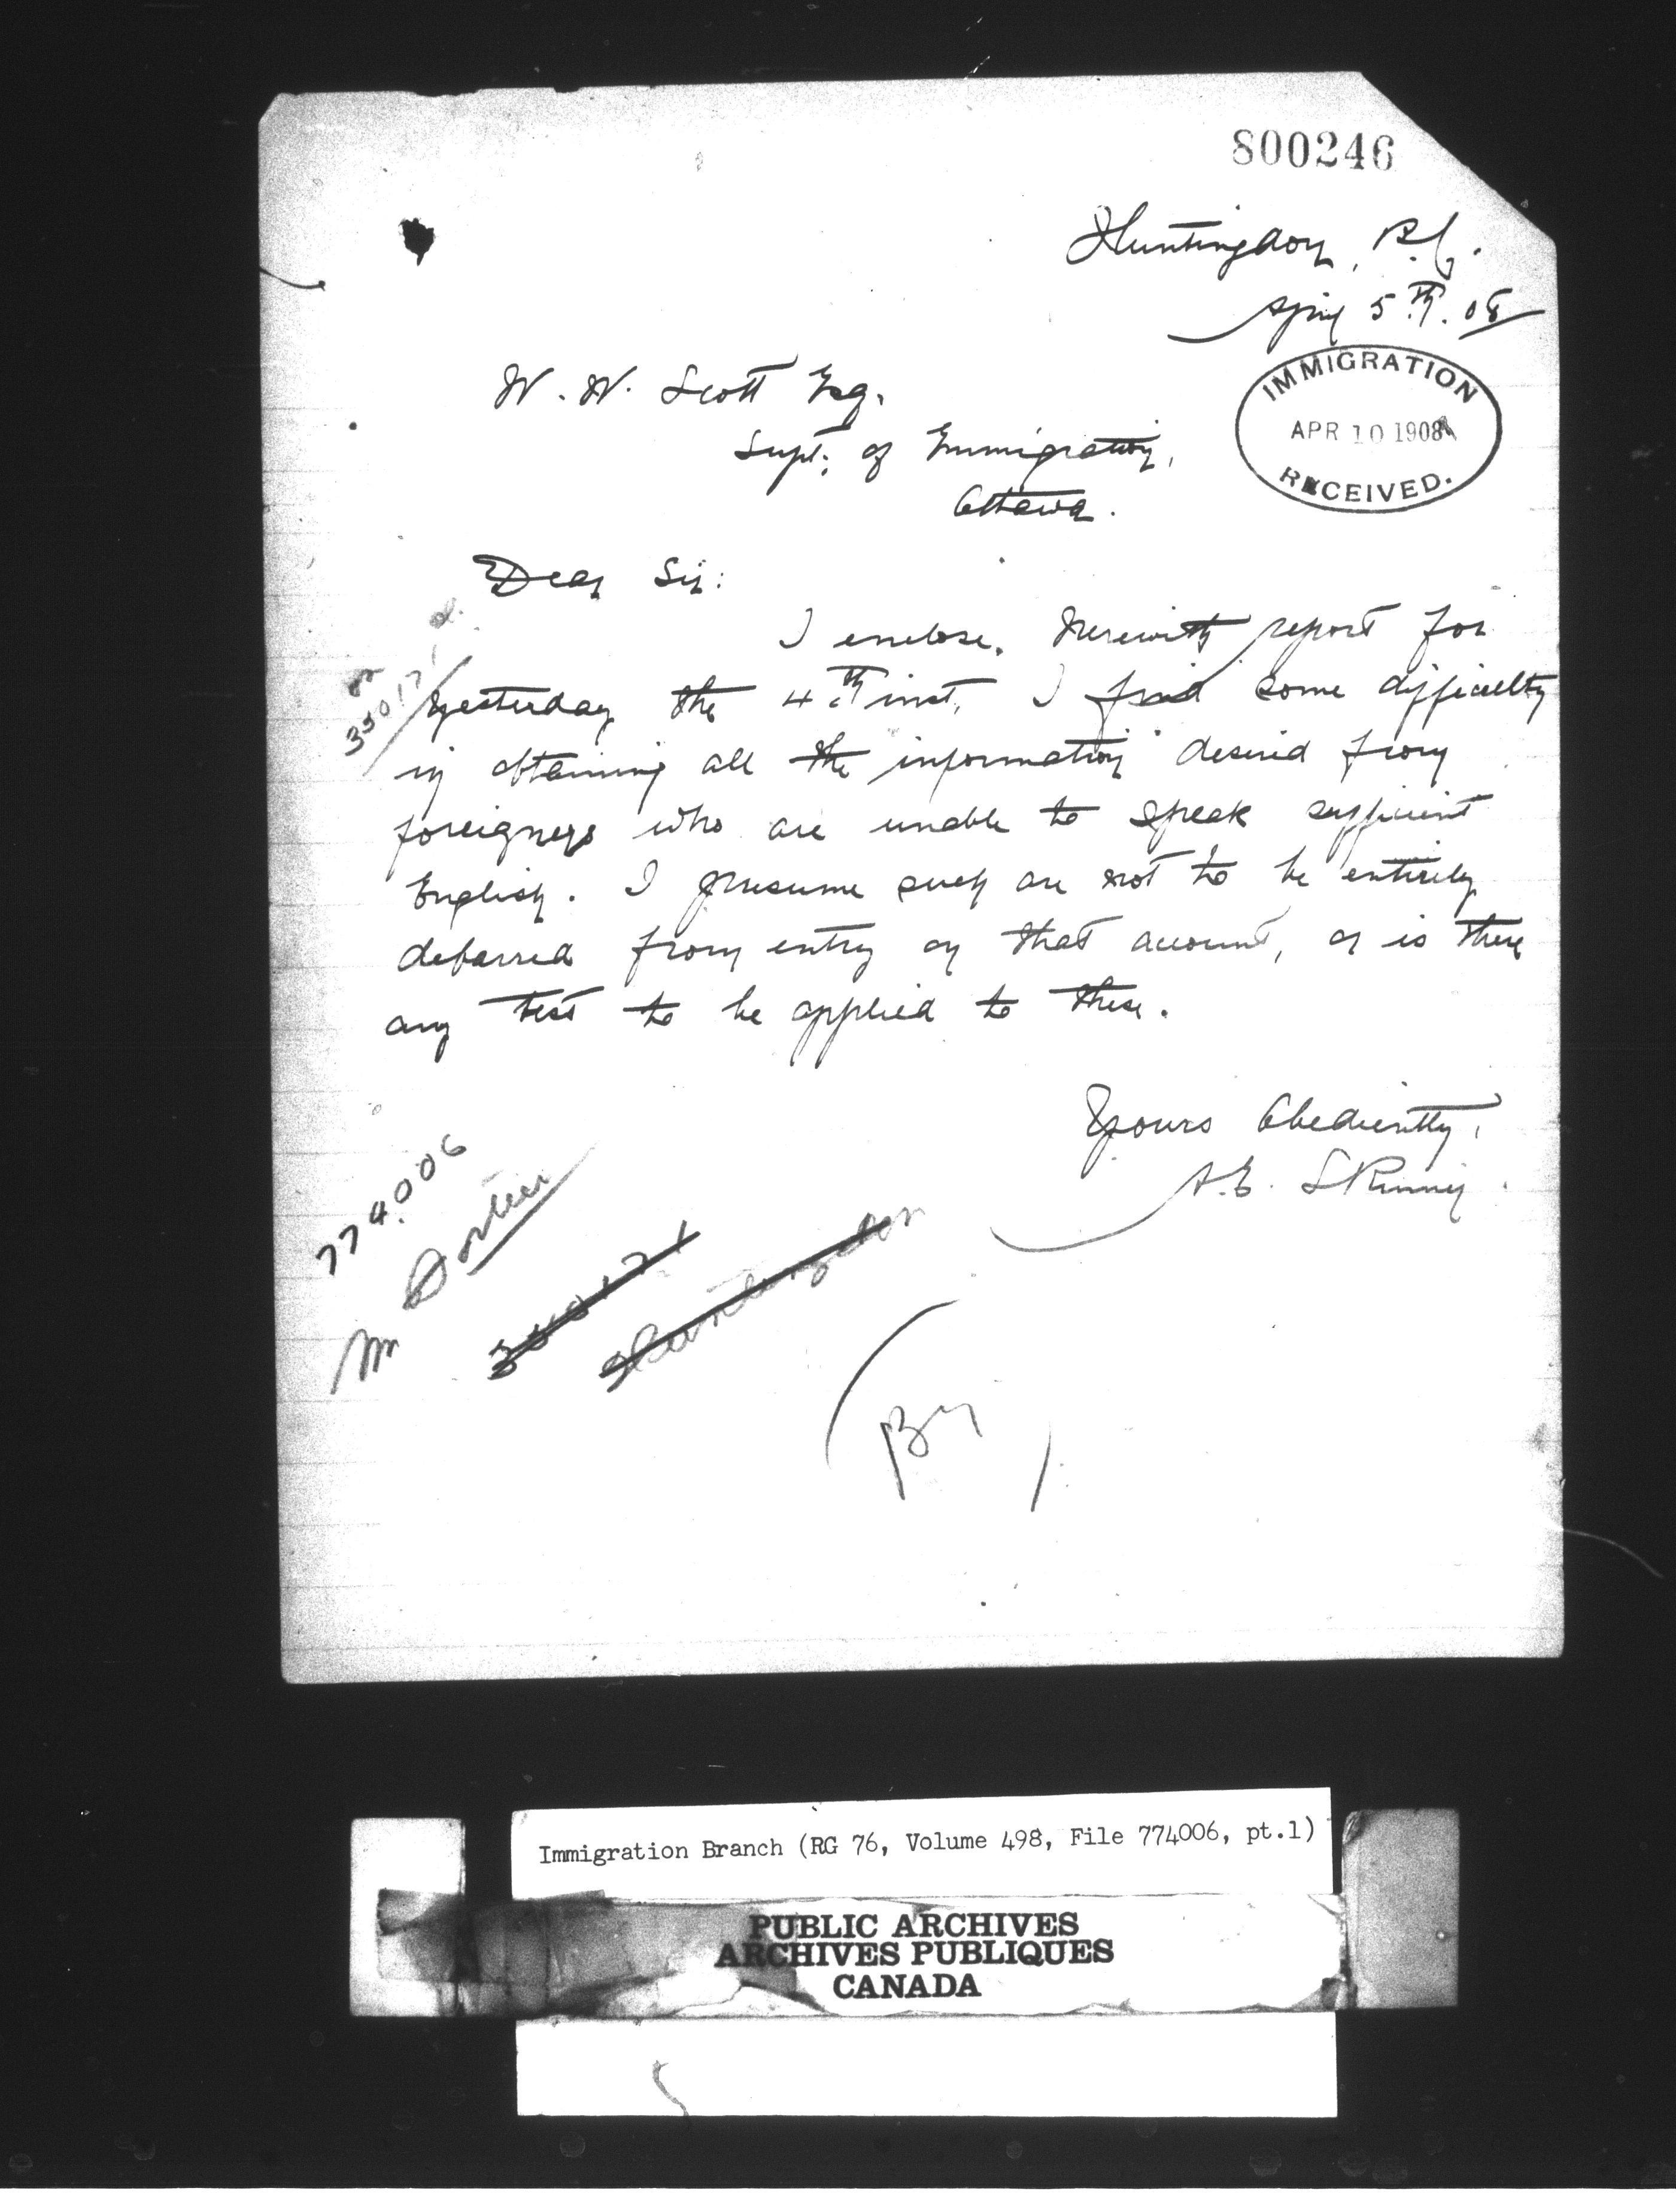 800246
Huntingdon, B.C.
April 5th. 08
W. W. Scott Esq.
Supt. of Immigration,
Ottawa.
IMMIGRATION
APR 10 1908
RECEIVED.
Dear Sir:
I enclose herewith report for
yesterday the 4th inst. I find some difficulty
in obtaining all the information desired from
foreigners who are unable to speak sufficient
English. I presume such are not to be entirely
debarred from entry on that account, or is there
any test to be applied to these.
Yours Obediently,
A.E. Skinner
on
350171
774.006
Mr
350171
Huntingdon
Immigration Branch (RG 76, Volume 498, File 774006, pt.1)
PUBLIC ARCHIVES
ARCHIVES PUBLIQUES
CANADA